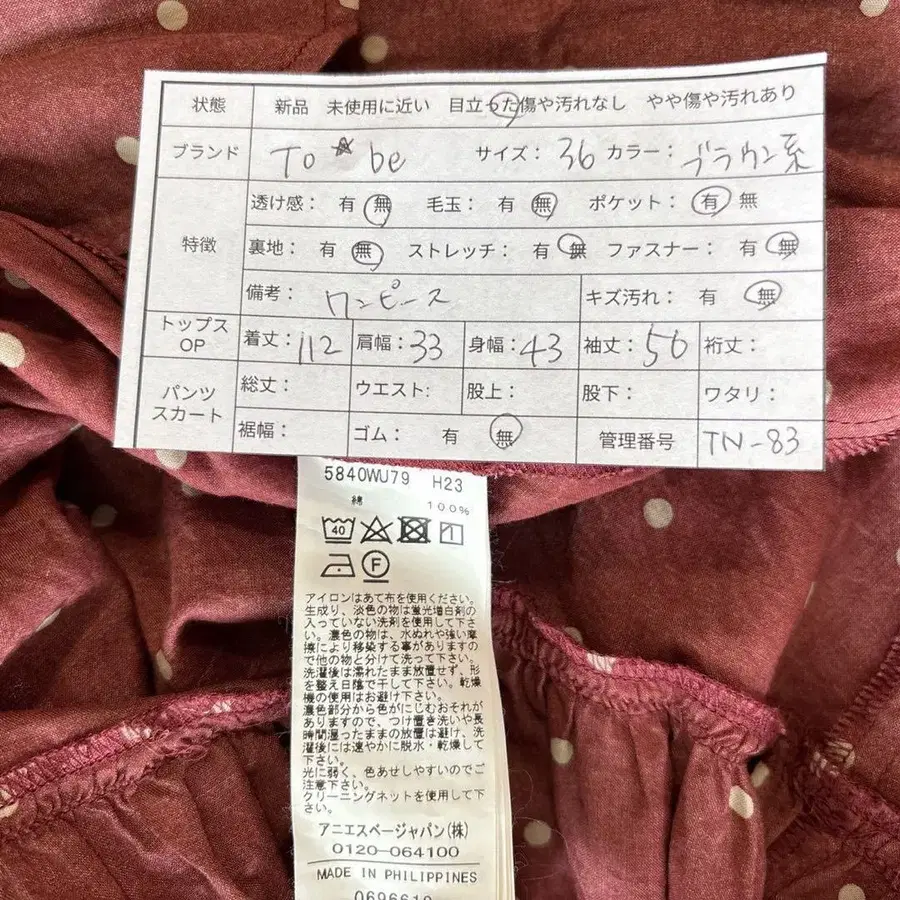 状態 新品 未使用に近い 目立った傷や汚れなし やや傷や汚れあり
ブランド To ☆ be サイズ: 36 カラー: ブラウン系
特徴
透け感: 有 無 毛玉: 有 無 ポケット: 有 無
裏地: 有 無 ストレッチ: 有 無 ファスナー: 有 無
備考: ワンピース キズ汚れ: 有 無
トップス OP 着丈: 112 肩幅: 33 身幅: 43 袖丈: 56 裄丈:
パンツ スカート
総丈: ウエスト: 股上: 股下: ワタリ:
裾幅: ゴム: 有 無 管理番号 TN-83
5840WU79 H23
綿
100%
40
F
アイロンはあて布を使用ください。
生成り、淡色の物は蛍光増白剤の
入っていない洗剤を使用して下さ
い。濃色の物は、水ぬれや強い摩
擦により移染する事がありますの
で他の物と分けて洗って下さい。
洗濯後は濡れたまま放置せず、形
を整え日陰で干して下さい。乾燥
機の使用はお避け下さい。
濃色部分から色がにじむおそれが
ありますので、つけ置き洗いや長
時間湿ったままの放置は避け、洗
濯後には速やかに脱水・乾燥して
下さい。
光に弱く、色あせしやすいのでご
注意下さい。
クリーニングネットを使用して下
さい。
アニエスベージャパン(株)
0120-064100
MADE IN PHILIPPINES